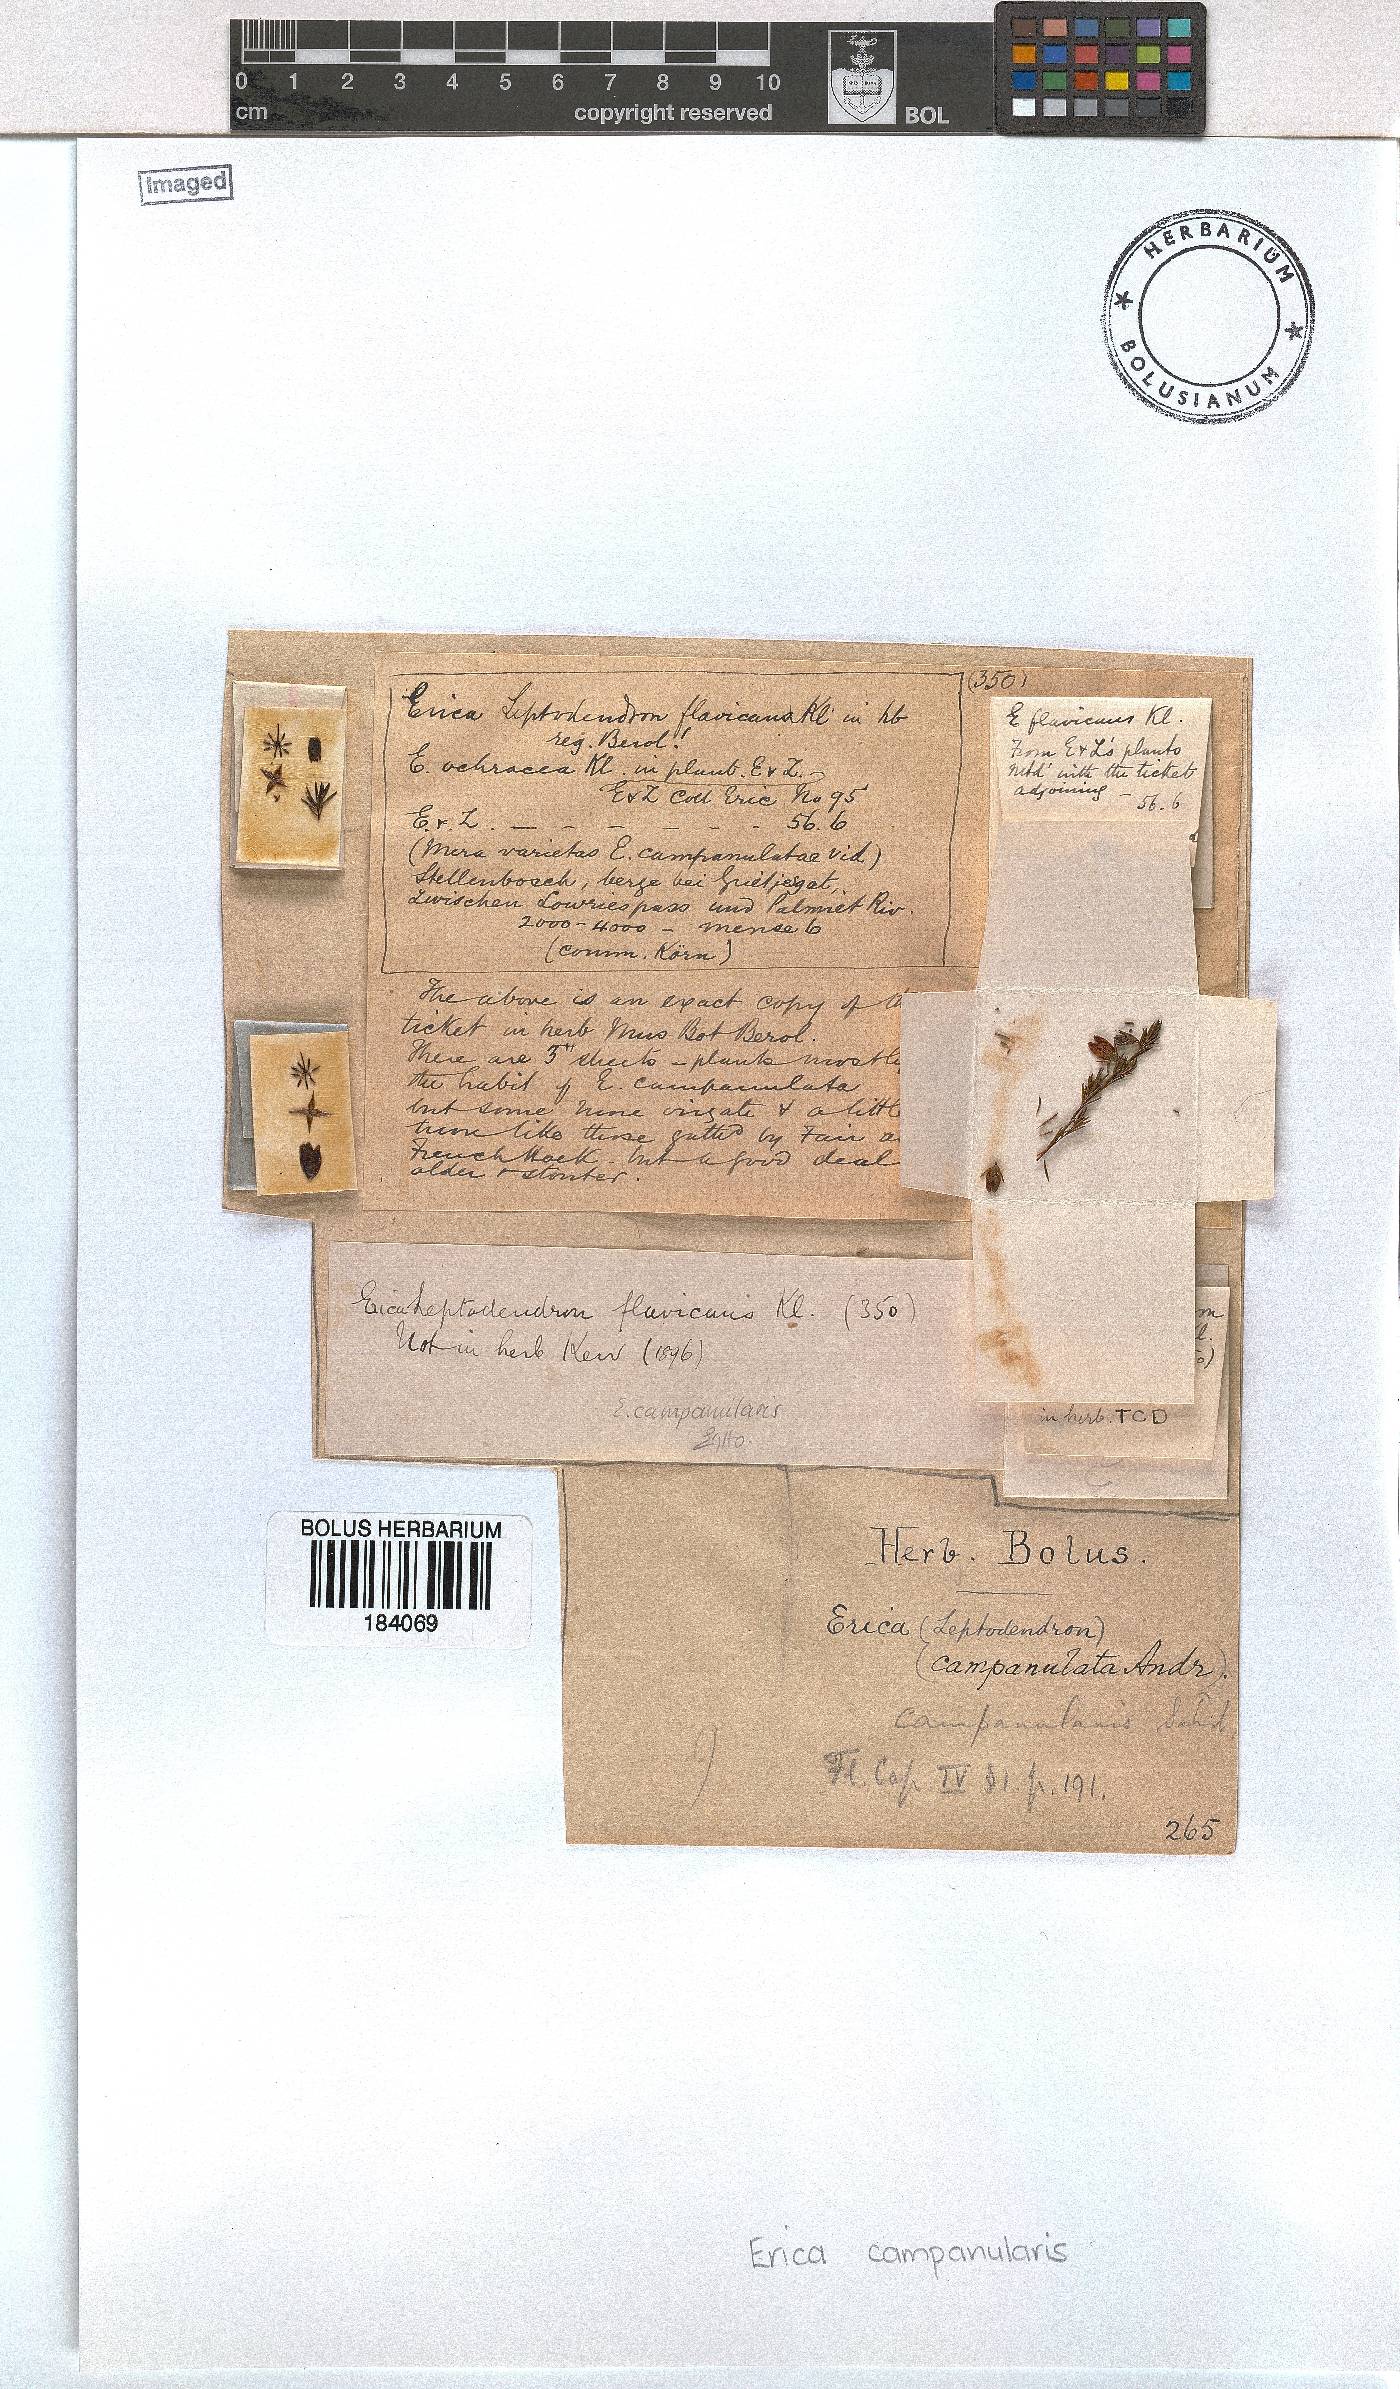 0 1 2 3 4 5 6 7 8 9 10
cm copyright reserved BOL
Imaged
HERBARIUM
BOLUSIANUM
(350)
Erica Leptodendron flavicans Kl in hb
reg. Berol!
E. ochracea Kl. in plant. E & Z.
E&Z Coll Eric No 95
E. & Z. — — — — — — 56.6
(Mera varietas E. campanulatae vid)
Stellenbosch, berge bei Grietjesgat,
zwischen Lowriespass und Palmiet Riv.
2000-4000 - mense 6
(comm. Körn)
E flavicans Kl.
From E & Z's plants
with the ticket
adjoining - 56.6
The above is an exact copy of th
ticket in herb Mus Bot Berol.
There are 3 sheets - plants mostly
the habit of E. campanulata
but some more virgate & a little
more like those gath'd by Fair a
French Hoek. but a good deal
older & stouter.
Erica Leptodendron flavicans Kl. (350)
Not in herb Kew (1896)
E. campanularis
in herb. TCD
BOLUS HERBARIUM
184069
Herb. Bolus.
Erica (Leptodendron)
(campanulata Andr).
campanularis Salisb.
Fl. Cap IV S1. p. 191.
265
Erica campanularis